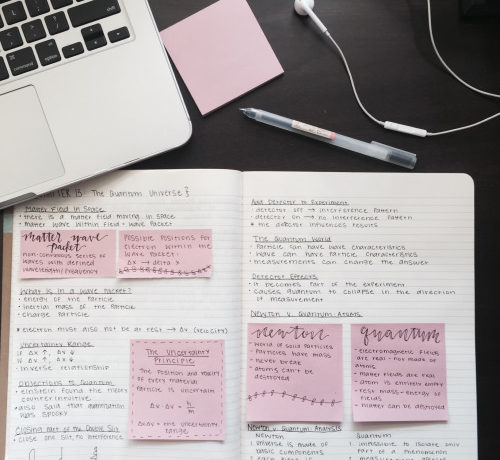 CHAPTER 13: The Quantum Universe }
Matter Field in Space
• there is a matter field moving in space
• matter wave within field = wave packet
matter wave
packet
non-continuous series of
waves with defined
wavelength/frequency
Possible positions for
electron within the
wave packet:
Δx → delta x
What is in a wave packet?
• energy of the particle
• inertial mass of the particle
• charge particle
* electron must also not be at rest → Δv (velocity)
Uncertainty Range
if Δx ↑, Δv ↓
if Δx ↓, Δv ↑
• inverse relationship
Objections to Quantum
• Einstein found the theory
counterintuitive
• also said that
was spooky
Closing Part of the Double Slit
• close one slit, no interference
The Uncertainty
Principle:
The position and velocity
of every material
particle is uncertain
Δx·Δv = h/m
ΔxΔv = the uncertainty
range
Add Detector to Experiment
• detector off → interference pattern
• detector on → no interference pattern
* the detector influences results
The Quantum World
• Particle can have wave characteristics
• Wave can have particle characteristics
• measurements can change the answer
Detector Effects
• It becomes part of the experiment
• Causes quantum to collapse in the direction
of measurement
Newton v. Quantum Atoms
newton
• World of solid particles
• particles have mass
• never break
• atoms can't be
destroyed
quantum
• electromagnetic fields
are real - not made of
atoms
• matter fields are real
• atom is entirely empty
• rest mass = energy of
fields
• matter can be destroyed
Newton v. Quantum Analysis
Newton
1 universe is made of
basic components
Quantum
1 impossible to isolate only
part of a phenomenon